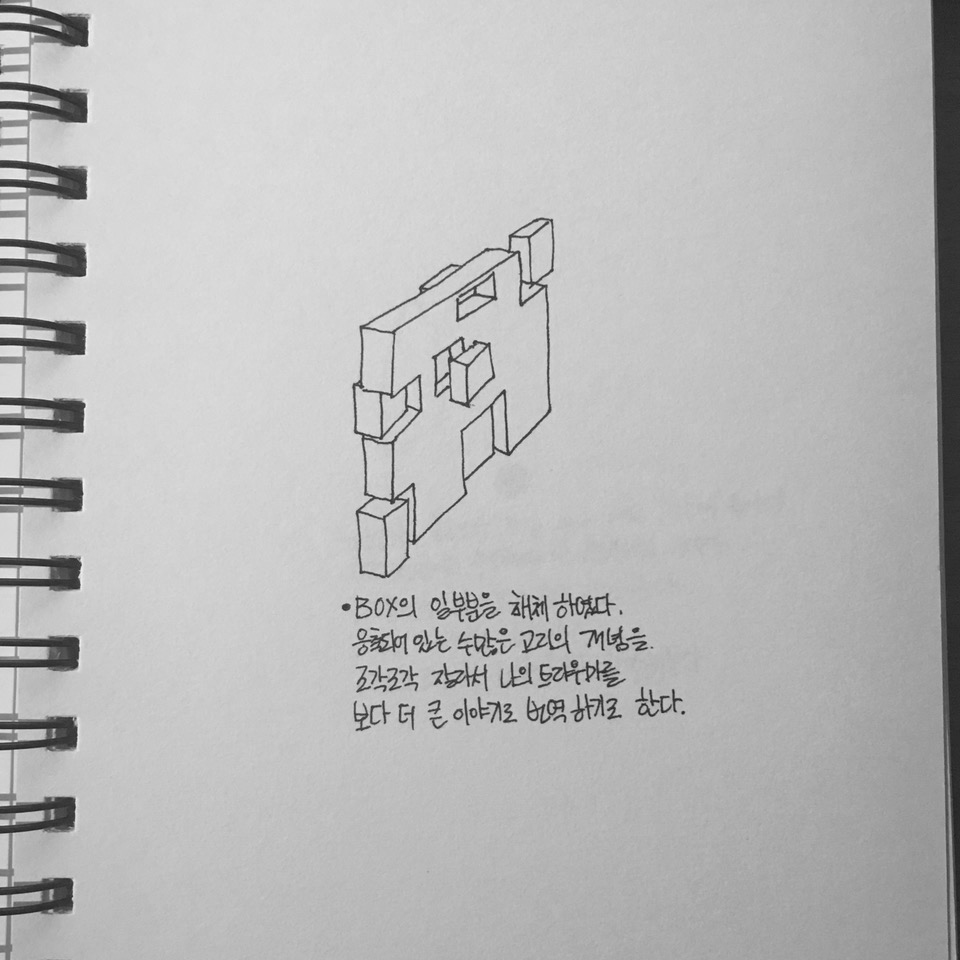 •BOX의 일부분을 해체 하였다.
응축되어 있는 수많은 고리의 개념을
조각조각 잘라서 나의 트라우마를
보다 더 큰 이야기로 번역하기로 한다.